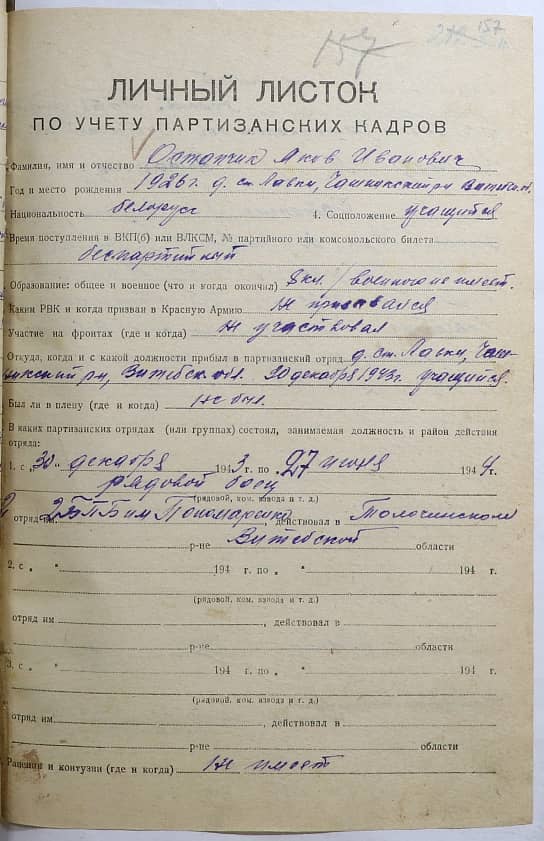 157
157
ЛИЧНЫЙ ЛИСТОК
ПО УЧЕТУ ПАРТИЗАНСКИХ КАДРОВ
Фамилия, имя и отчество Остапчик Яков Иванович
Год и место рождения 1926 г. д. ст. Лавки, Чашникский р-н Витебск. об.
Национальность белорус 4. Соцположение учащийся
Время поступления в ВКП(б) или ВЛКСМ, № партийного или комсомольского билета
беспартийный
Образование: общее и военное (что и когда окончил) 8 кл. / военного не имеет.
Каким РВК и когда призван в Красную Армию не призвался
Участие на фронтах (где и когда) не участвовал
Откуда, когда и с какой должности прибыл в партизанский отряд д. ст. Лавки, Чаш-
никский р-н, Витебск. обл. 20 декабря 1943 г. учащийся.
Был ли в плену (где и когда) не был.
В каких партизанских отрядах (или группах) состоял, занимаемая должность и район действия
отряда:
1. с „30" декабря 1943 г. по „27 июня 1944 г.
рядовой боец
(рядовой, ком. взвода и т. д.)
отряд им. 2 БПБ им Пономаренко действовал в Толочинском
р-не Витебской области
2. с „ " 194 г. по „ " 194 г.
(рядовой, ком. взвода и т. д.)
отряд им. , действовал в
р-не области
3. с „ " 194 г. по „ " 194 г.
(рядовой, ком. взвода и т. д.)
отряд им. , действовал в
р-не области
Ранения и контузии (где и когда) не имеет